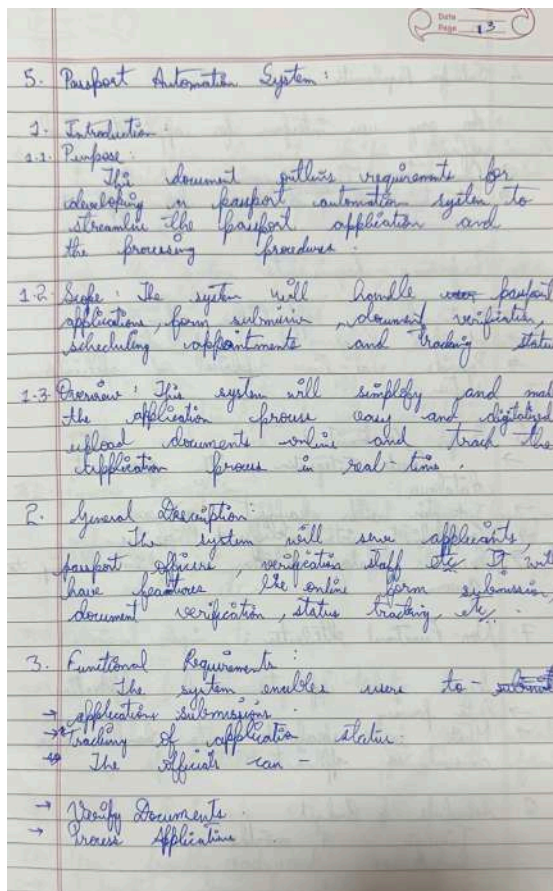 Date
Page 13
5. Passport Automation System :
1. Introduction :
1.1. Purpose :
This document outlines requirements for
developing a passport automation system to
streamline the passport application and
the processing procedures .
1.2 Scope : The system will handle passport
applications, form submission , document verification,
scheduling appointments and tracking status
1.3 Overview : This system will simplify and mak
the application process easy and digitalized
upload documents online and track the
application process in real-time .
2. General Description :
The system will serve applicants,
passport officers , verification staff etc. It will
have features like online form submission,
document verification , status tracking, etc.
3. Functional Requirements :
The system enables users to -
→ applications submissions .
→ Tracking of application status.
→ The officials can -
→ Verify Documents .
→ Process Applications .